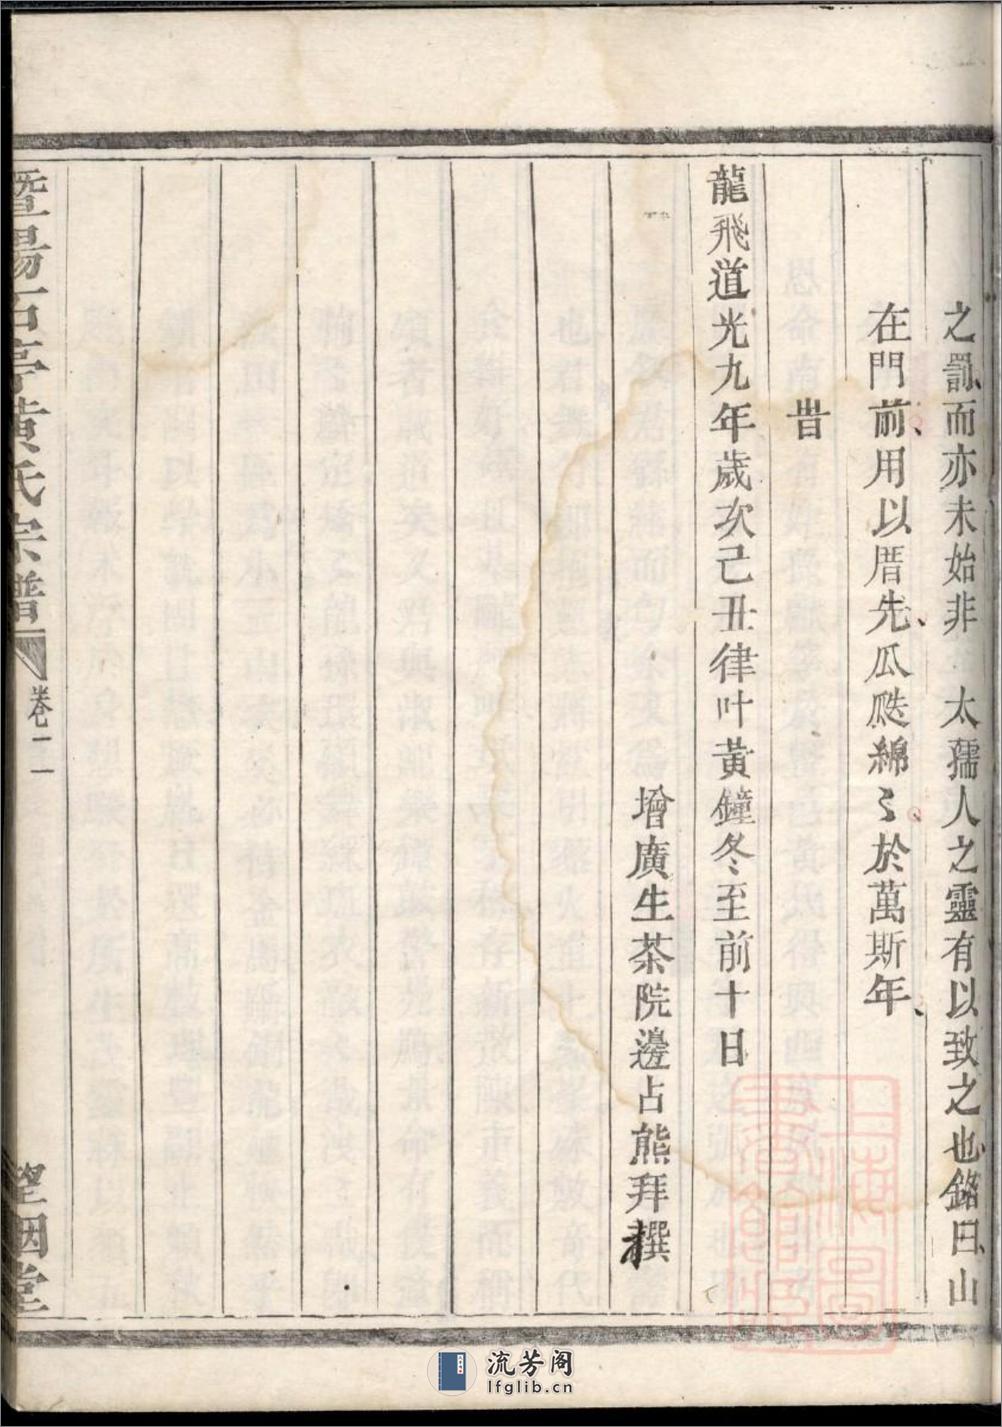 之罰而亦未始非　太孺人之靈有以致之也銘曰山
在門前用以厝先瓜瓞綿〻於萬斯年
旹
龍飛道光九年歲次己丑律叶黃鐘冬至前十日
增廣生茶院邊占熊拜撰
暨陽古亭黃氏宗譜
卷二
堂
流芳阁
lfglib.cn